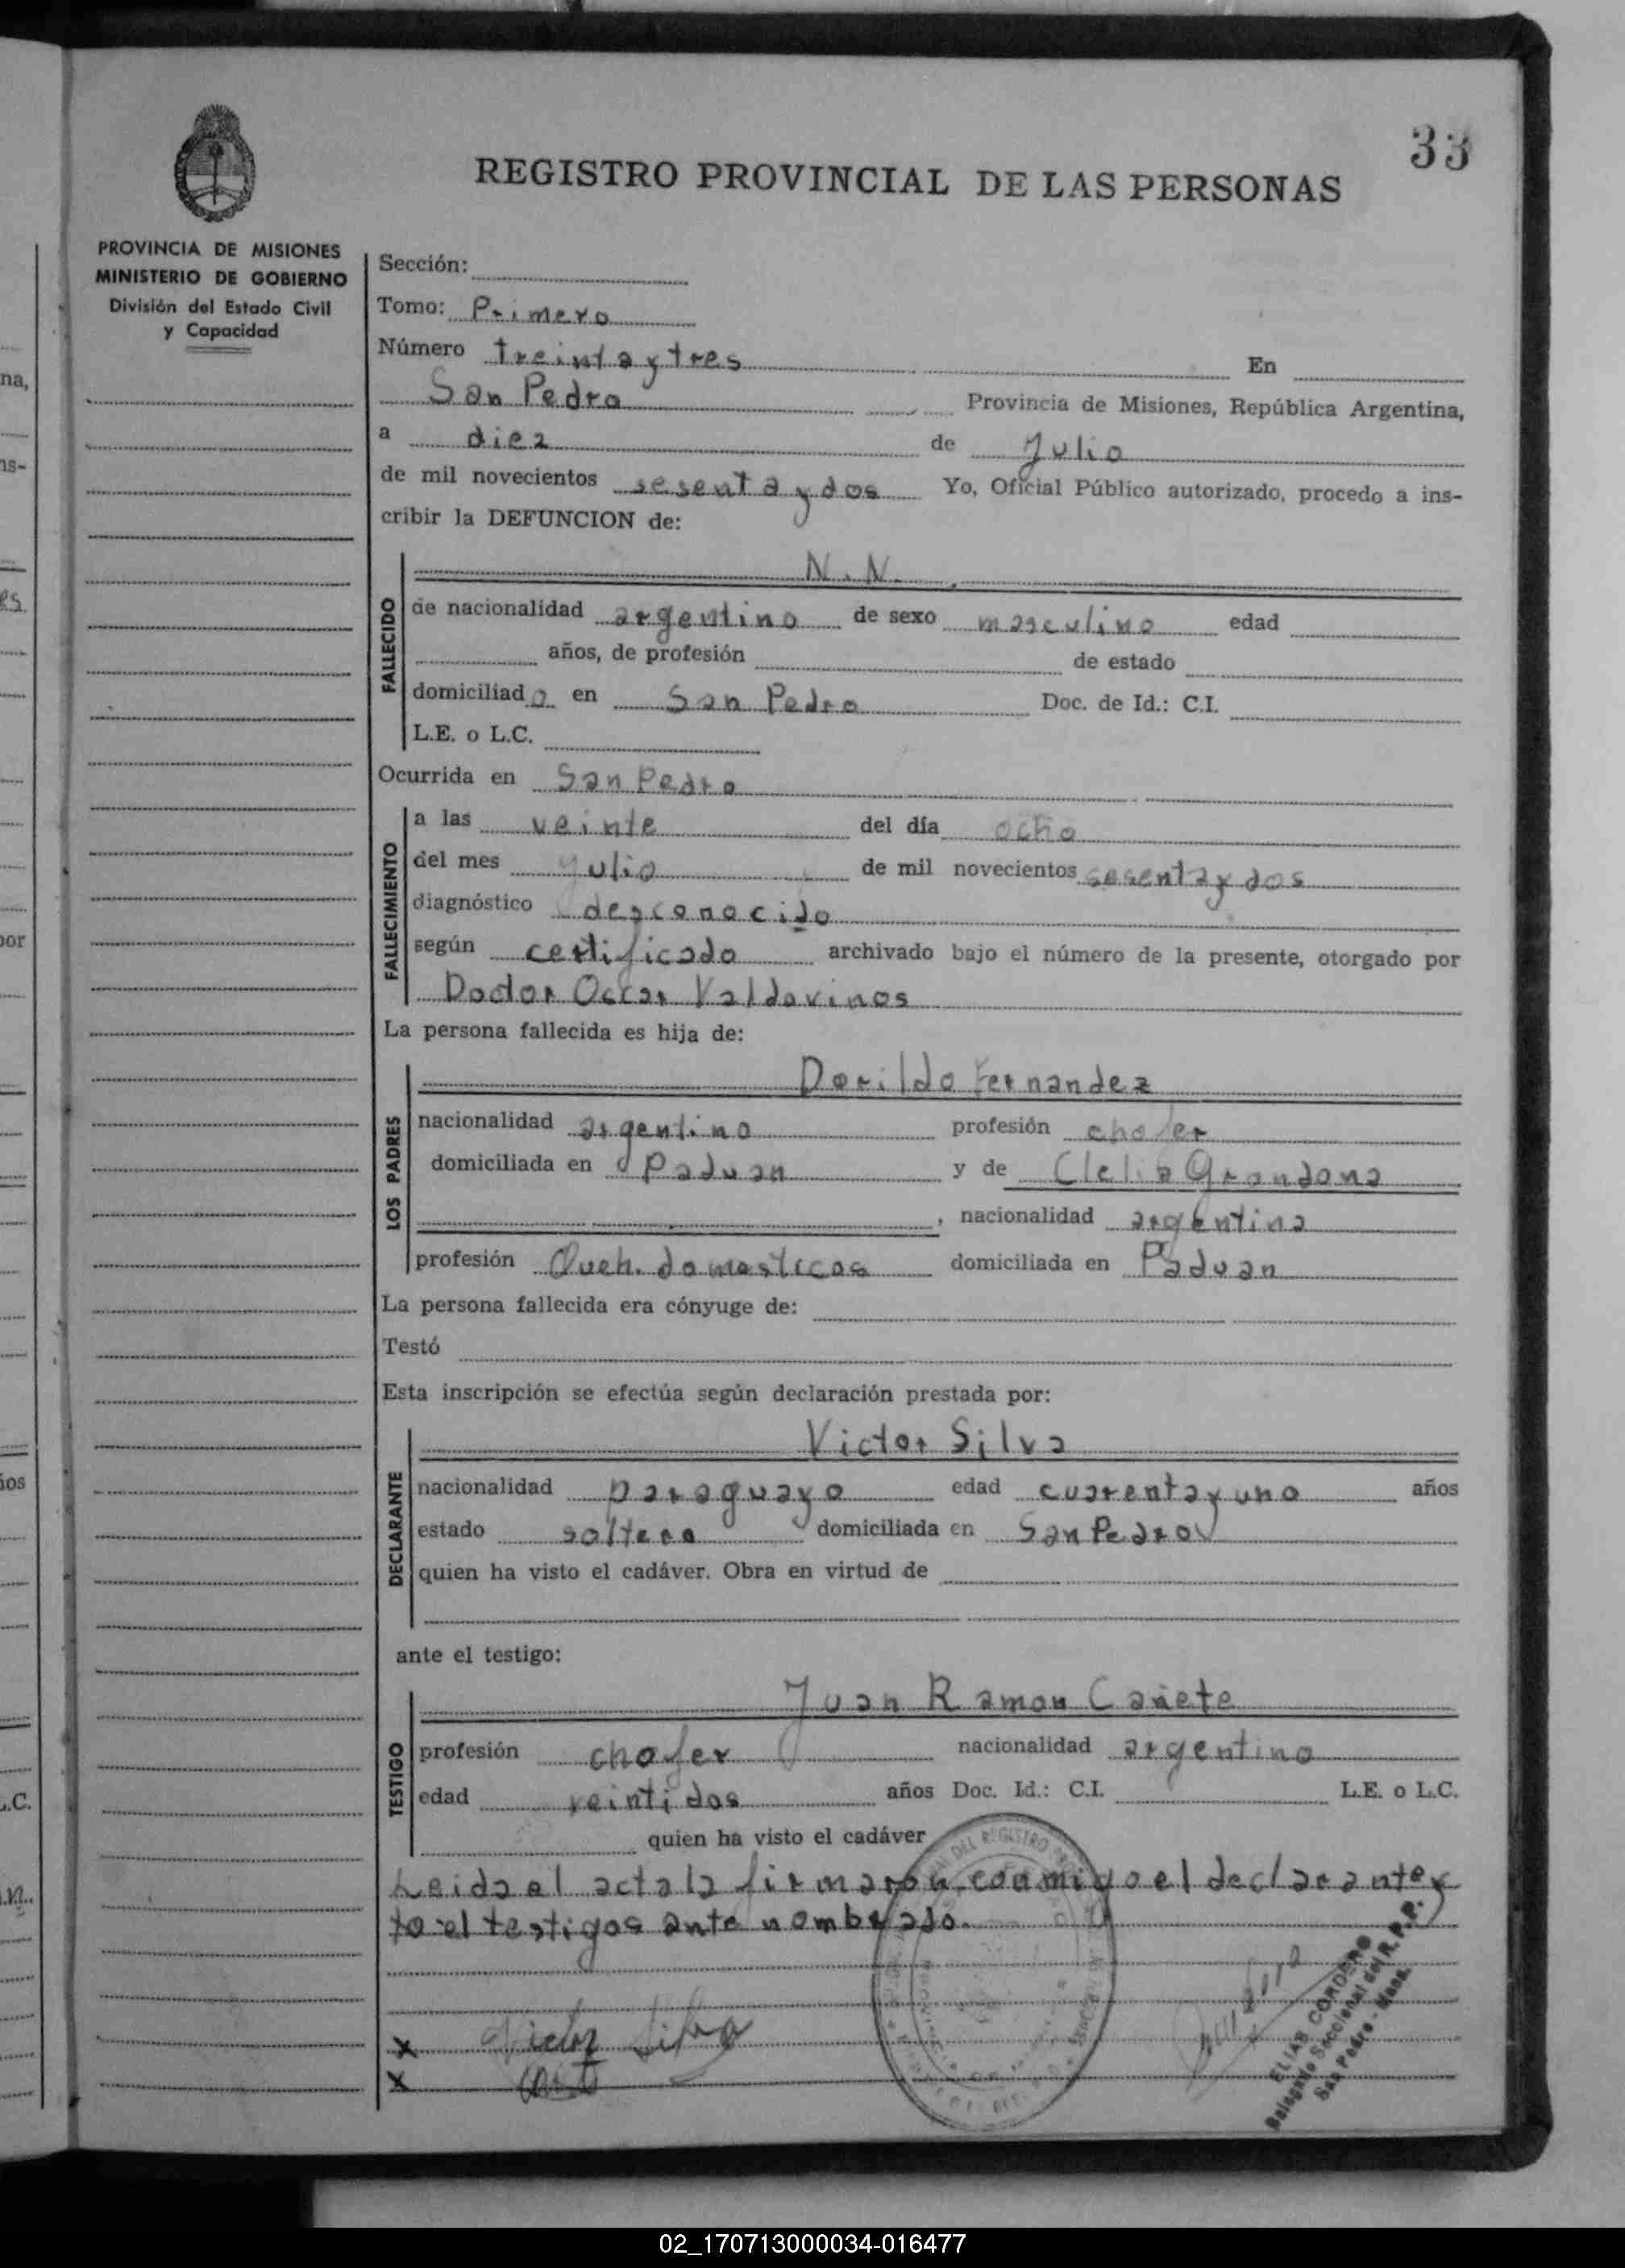 33
REGISTRO PROVINCIAL DE LAS PERSONAS
PROVINCIA DE MISIONES
MINISTERIO DE GOBIERNO
División del Estado Civil
y Capacidad
Sección:
Tomo: Primero
Número treinta y tres En
San Pedro Provincia de Misiones, República Argentina,
a diez de Julio
de mil novecientos sesenta y dos Yo, Oficial Público autorizado, procedo a ins-
cribir la DEFUNCION de:
FALLECIDO
N. N.
de nacionalidad argentino de sexo masculino edad
años, de profesión de estado
domiciliado en San Pedro Doc. de Id.: C.I.
L.E. o L.C.
Ocurrida en San Pedro
FALLECIMIENTO
a las veinte del día ocho
del mes julio de mil novecientos sesenta y dos
diagnóstico desconocido
según certificado archivado bajo el número de la presente, otorgado por
Doctor Oscar Valdovinos
La persona fallecida es hija de:
LOS PADRES
Dorildo Fernandez
nacionalidad argentino profesión chofer
domiciliada en Paduan y de Clelia Grondona
, nacionalidad argentina
profesión Queh. domesticos domiciliada en Paduan
La persona fallecida era cónyuge de:
Testó
Esta inscripción se efectúa según declaración prestada por:
DECLARANTE
Victor Silva
nacionalidad paraguayo edad cuarenta y uno años
estado soltero domiciliada en San Pedro
quien ha visto el cadáver. Obra en virtud de
ante el testigo:
TESTIGO
Juan Ramon Cañete
profesión chofer nacionalidad argentino
edad veintidos años Doc. Id.: C.I. L.E. o L.C.
quien ha visto el cadáver
Leida el acta la firmaron conmigo el declarante y
el testigos ante nombrado.
x Victor Silva
x
ELIAS CORDERO
Delegado Seccional del R. P. P.
San Pedro - Mnes.
na,
ns-
es.
por
ios
L.C.
n.
02_170713000034-016477